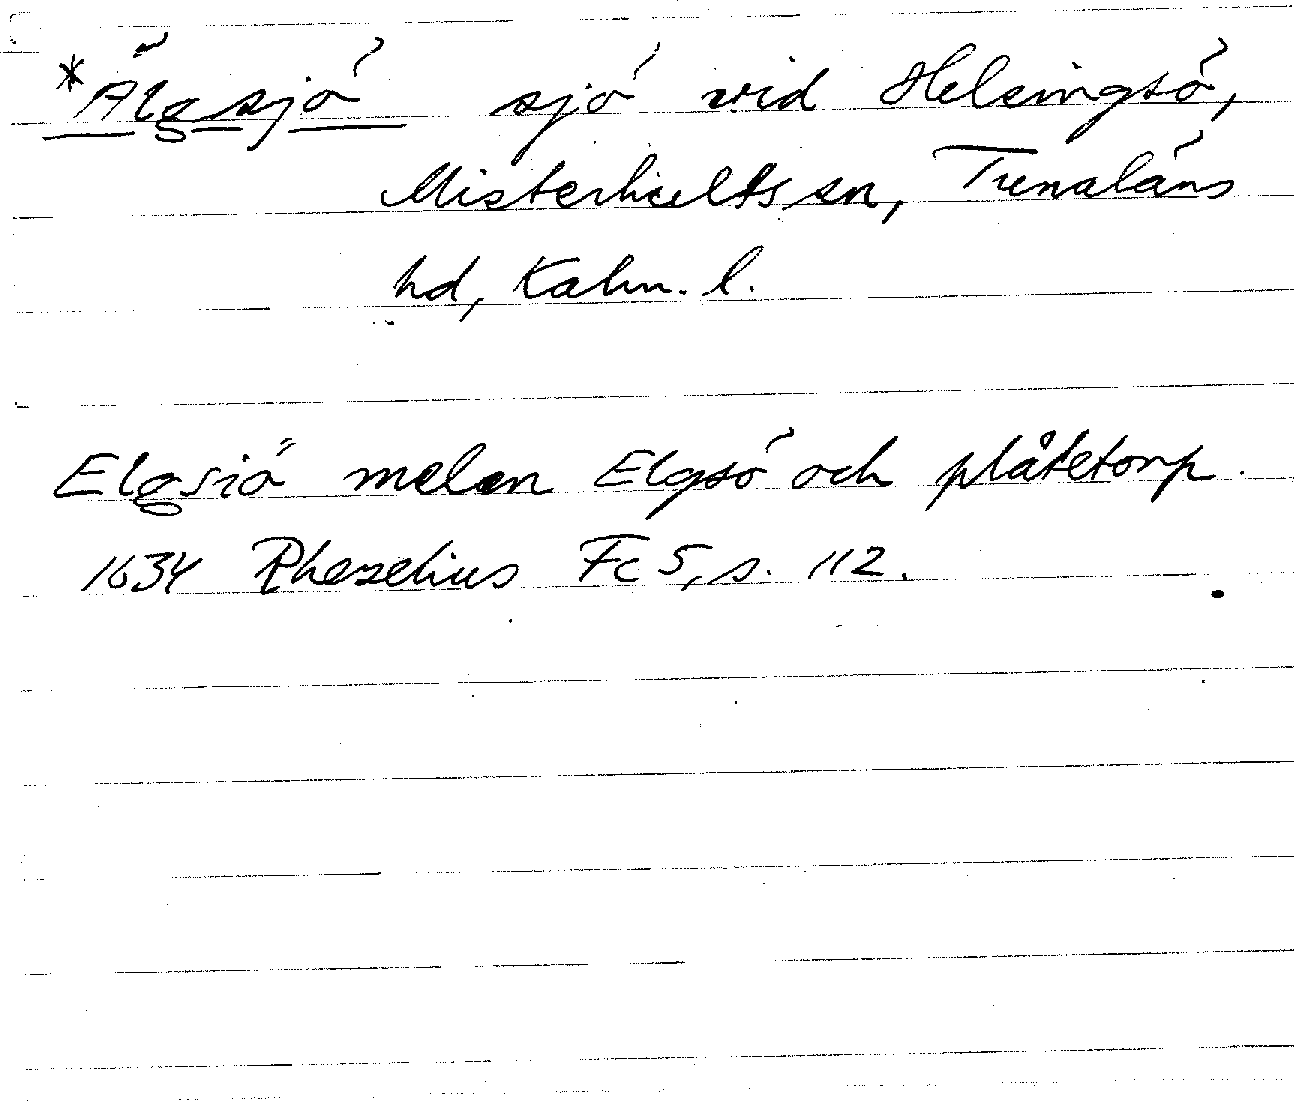 *Älgsjö sjö vid Helsingsö,
Misterhults sn, Tunaläns
hd, Kalm. l.
Elgsiö melan Elgsö och plåtetorp.
1634 Rhezelius Fc 5, s. 112.